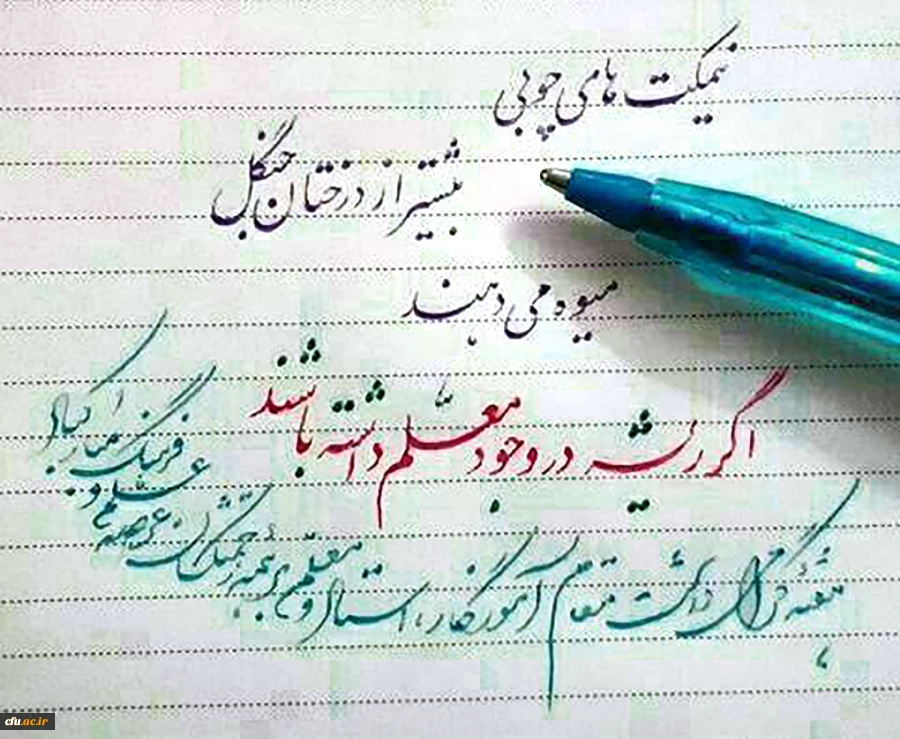 نیمکت های چوبی
بیشتر از درختان جنگل
میوه می دهند
اگر ریشه در وجود معلّم داشته باشند
هفتهٔ گرامیداشت مقام آموزگار، استاد و معلّم بر همه زحمتکشان عرصه علم و فرهنگ مبارکباد
cfu.ac.ir